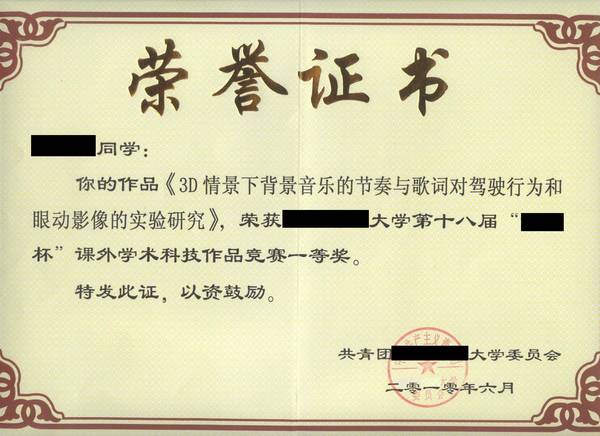 荣誉证书
同学：
你的作品《3D 情景下背景音乐的节奏与歌词对驾驶行为和
眼动影像的实验研究》，荣获大学第十八届“
杯”课外学术科技作品竞赛一等奖。
特发此证，以资鼓励。
共青团大学委员会
二零一零年六月